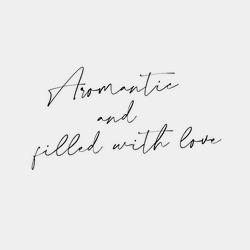 Aromantic
and
filled with love